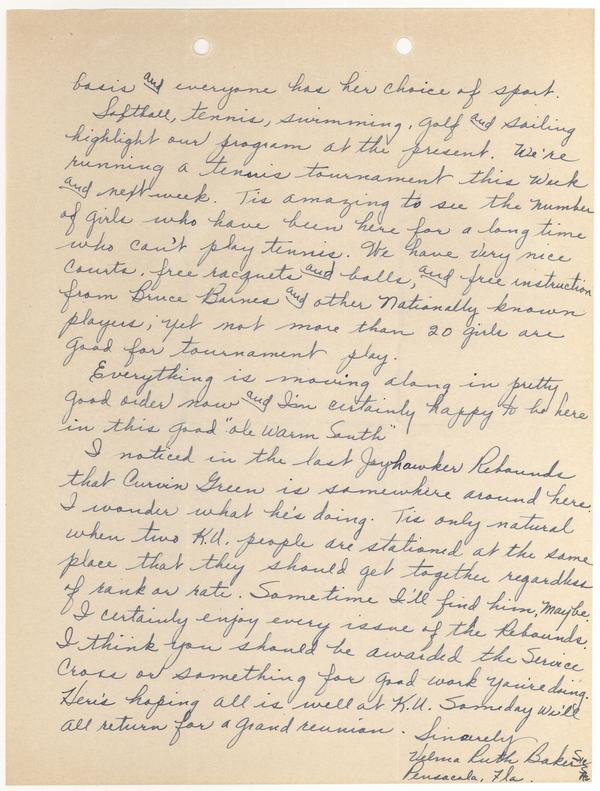 basis and everyone has her choice of sport.
Softball, tennis, swimming, golf and sailing
highlight our program at the present. We're
running a tennis tournament this week
and next week. Tis amazing to see the number
of girls who have been here for a long time
who can't play tennis. We have very nice
courts, free racquets and balls, and free instruction
from Bruce Barnes and other Nationally known
players; yet not more than 20 girls are
good for tournament play.
Everything is moving along in pretty
good order now and I'm certainly happy to be here
in this good "ole Warm South"
I noticed in the last Jayhawker Rebounds
that Curvin Green is somewhere around here.
I wonder what he's doing. Tis only natural
when two K.U. people are stationed at the same
place that they should get together regardless
of rank or rate. Sometime I'll find him, maybe.
I certainly enjoy every issue of the Rebounds.
I think you should be awarded the Service
Cross or something for good work you're doing.
Here's hoping all is well at K.U. Someday we'll
all return for a grand reunion.
Sincerely
Velma Ruth Baker
Pensacola, Fla.